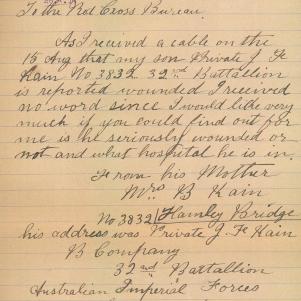 To the Red Cross Bureau.
As I received a cable on the
15 Aug that my son Private J Fk
Kain No 3832 32nd Battallion
is reported wounded I received
no word since I would like very
much if you could find out for
me is he seriously wounded or
not and what hospital he is in.
From his Mother
Mrs B Kain
No 3832 Hamley Bridge
his address was Private J. Fk Kain
B Company
32nd Battallion
Australian Imperial Forces